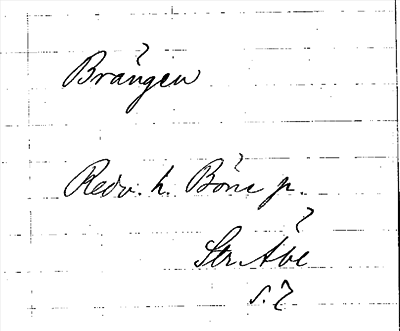 Brångeu
Redv. h. Böne p.
Str. Åbe
s. 2